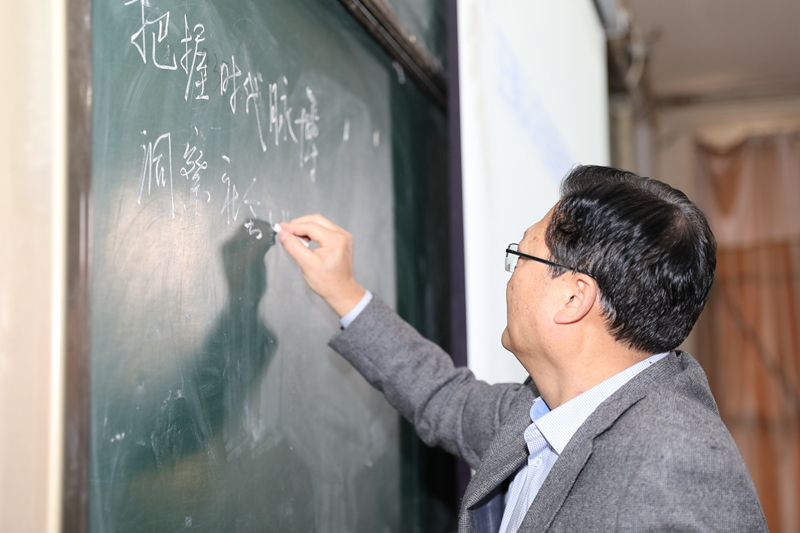 把握时代脉搏
洞察社会